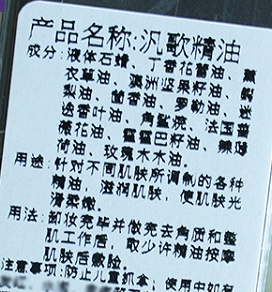 产品名称:汎歌精油
成分:液体石蜡、丁香花蕾油、薰
衣草油、澳洲坚果籽油、鳄
梨油、茴香油、罗勒油、迷
迭香叶油、角鲨烷、法国蔷
薇花油、霍霍巴籽油、辣薄
荷油、玫瑰木木油。
用途:针对不同肌肤所调制的各种
精油,滋润肌肤,使肌肤光
滑柔嫩。
用法:卸妆完毕并做完去角质和整
肌工作后,取少许精油按摩
肌肤后敷脸。
注意事项:防止儿童抓拿;使用中如有